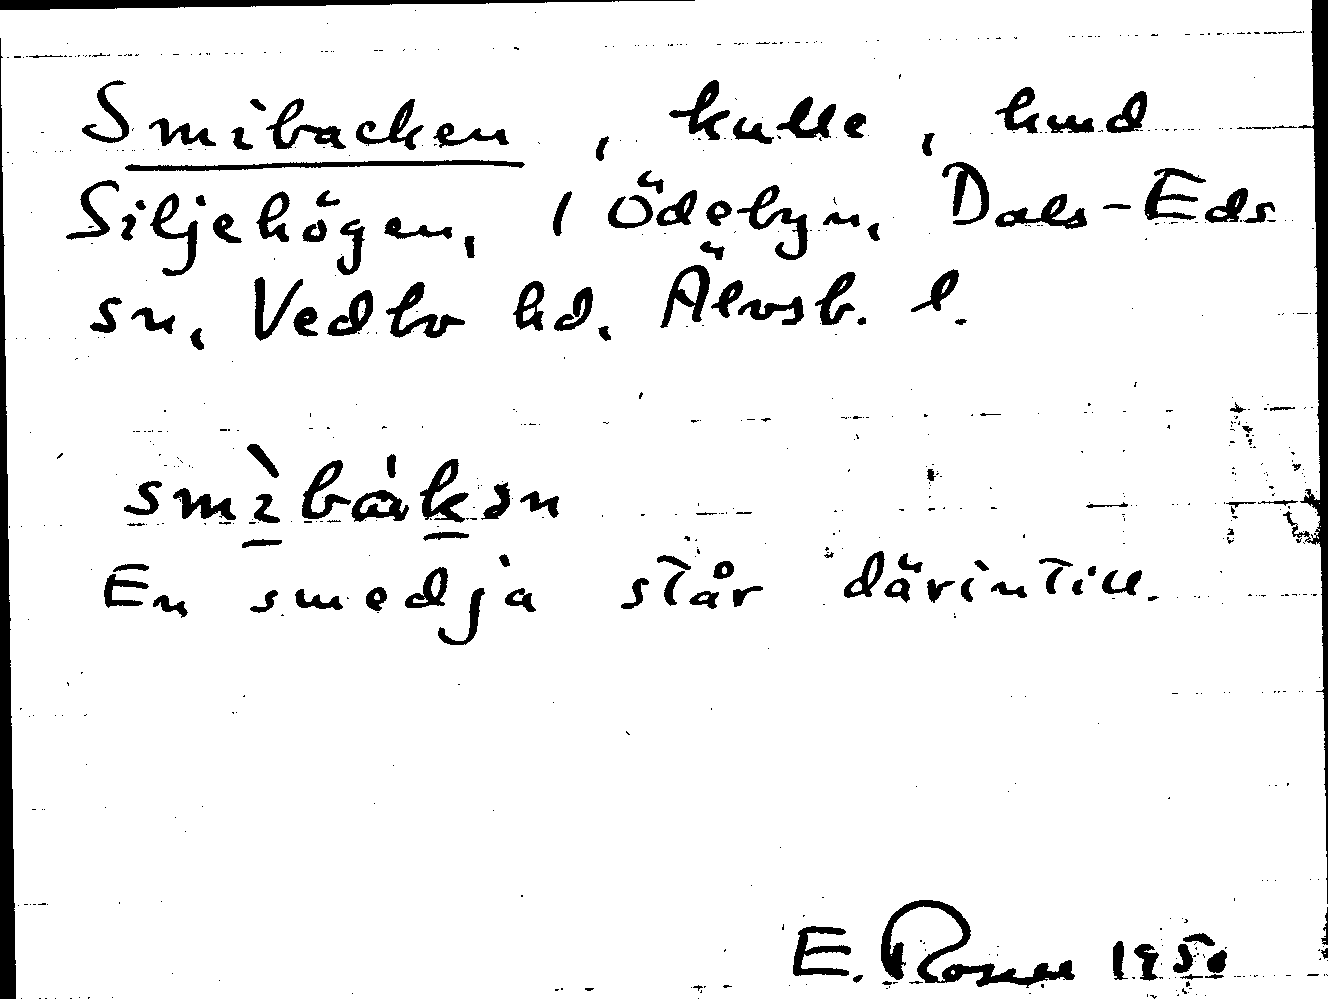 Smibacken, kulle, hmd
Siljehögen, 1 Ödebyn, Dals-Eds
sn, Vedbo hd. Älvsb. l.
smìbákən
En smedja står därintill.
E. 1950